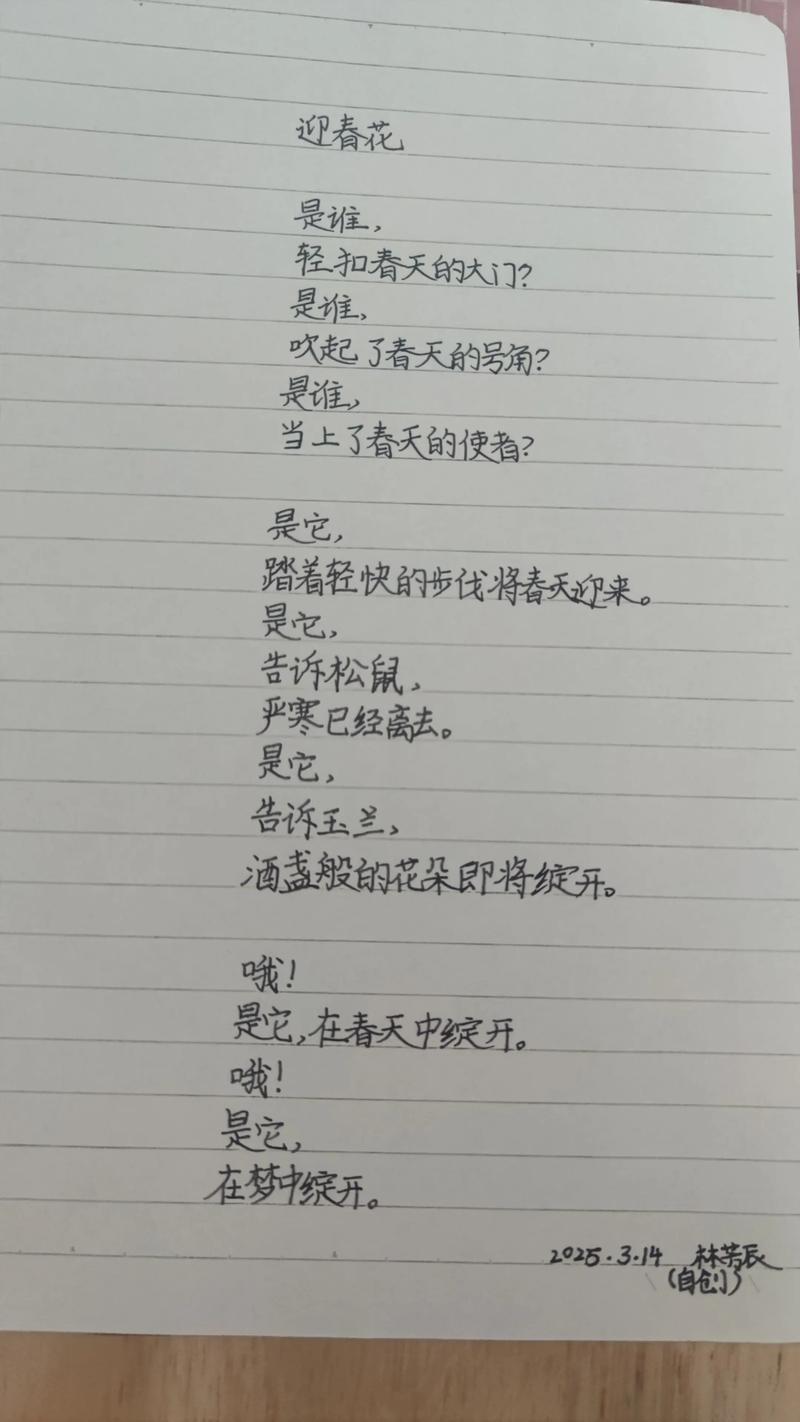 迎春花
是谁，
轻扣春天的大门？
是谁，
吹起了春天的号角？
是谁，
当上了春天的使者？
是它，
踏着轻快的步伐将春天迎来。
是它，
告诉松鼠，
严寒已经离去。
是它，
告诉玉兰，
酒盏般的花朵即将绽开。
哦！
是它，在春天中绽开。
哦！
是它，
在梦中绽开。
2025.3.14 林芳辰
（自创）